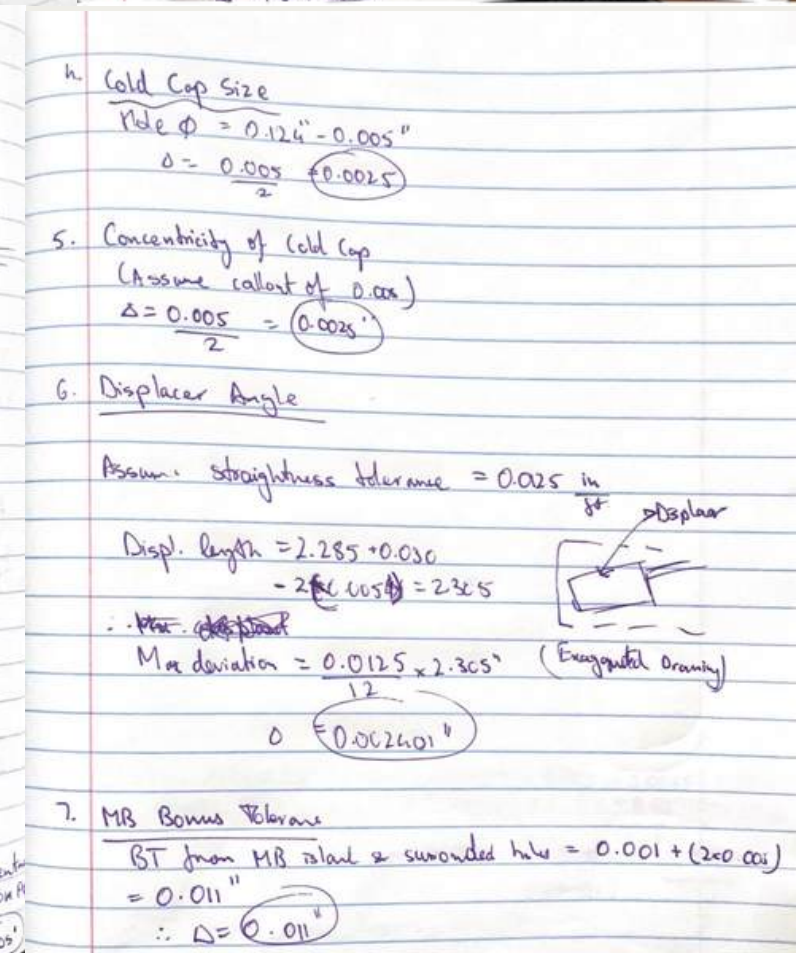 h. Cold Cap Size
Hole φ = 0.124" - 0.005"
Δ = 0.005/2 = 0.0025
5. Concentricity of Cold Cap
(Assume callout of 0.005)
Δ = 0.005/2 = 0.0025"
6. Displacer Angle
Assum. straightness tolerance = 0.025 in/ft
Displacer
Displ. length = 2.285 + 0.030
- 2(0.005) = 2.305
∴
Max deviation = 0.0125/12 × 2.305" (Exaggerated Drawing)
Δ = 0.002401"
7. MB Bonus Tolerance
BT from MB island & surrounded holes = 0.001 + (2×0.005)
= 0.011"
∴ Δ = 0.011"